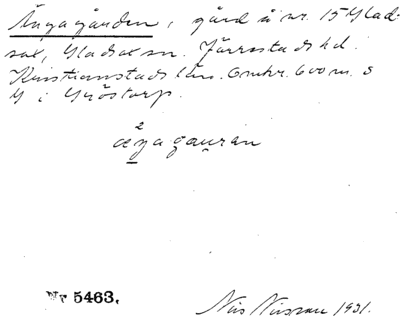 Ängagården, gård å nr. 15 Glad-
sax, Gladsax sn. Järrestads hd.
Kristianstads län. Omkr. 600 m. S
G i Gröstorp.
ængagauran
Nr 5463.
Nils Nilsson 1931.